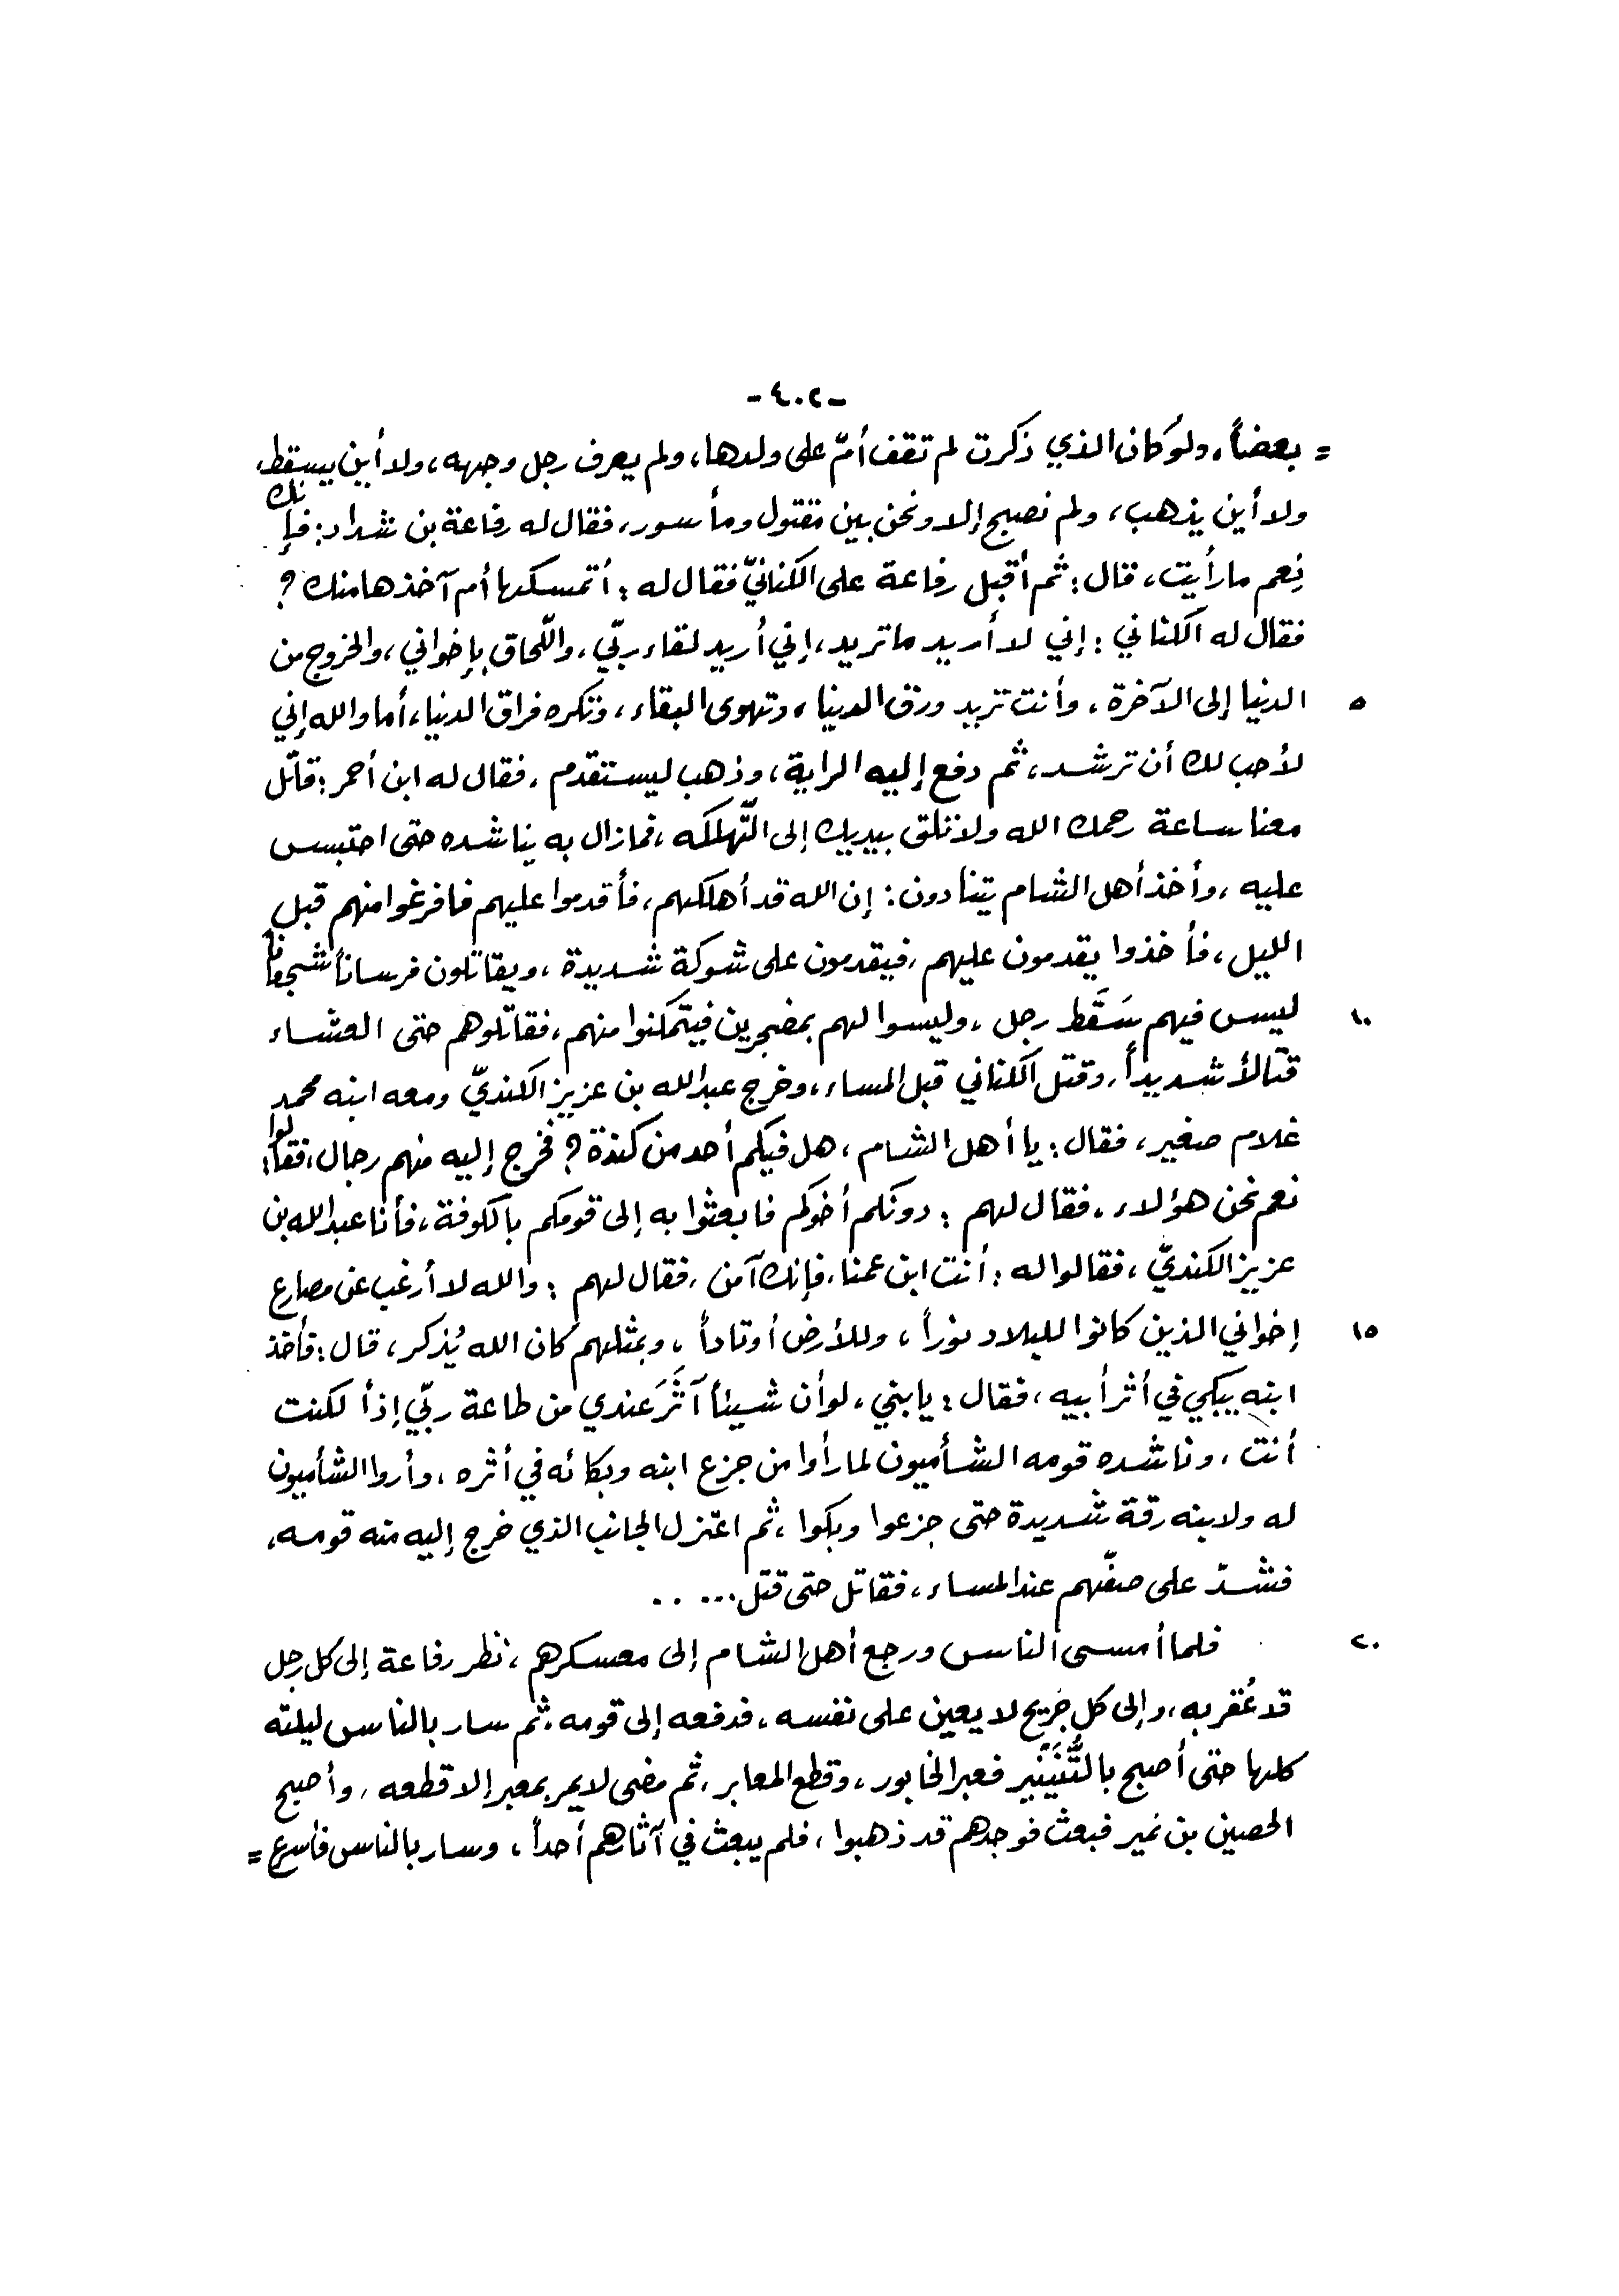 -٤٠٢-
= بعضاً، ولو كان الذي ذكرت لم تقف أمّ على ولدها، ولم يعرف رجل وجهه، ولا أين يسقط،
ولا أين يذهب، ولم نصبح إلا ونحن بين مقتول ومأسور، فقال له رفاعة بن شداد: فإنك
نِعم ما رأيت، قال: ثم أقبل رفاعة على الكنانيّ فقال له: أتمسكها أم آخذها منك؟
فقال له الكناني: إني لا أريد ما تريد، إني أريد لقاء ربّي، واللّحاق بإخواني، والخروج من
٥ الدنيا إلى الآخرة، وأنت تريد ورق الدنيا، وتهوى البقاء، وتكره فراق الدنيا، أما والله إني
لأحب لك أن ترشد، ثم دفع إليه الراية، وذهب ليستقدم، فقال له ابن أحمر: قاتل
معنا ساعة رحمك الله ولا تلق بيديك إلى التّهلكه، فما زال به يناشده حتى احتبس
عليه، وأخذ أهل الشام يتنادون: إن الله قد أهلكهم، فأقدموا عليهم فافرغوا منهم قبل
الليل، فأخذوا يقدمون عليهم، فيقدمون على شوكة شديدة، ويقاتلون فرساناً شجعاناً
١٠ ليس فيهم سَقَط رجل، وليسوا لهم بمضجرين فيتمكنوا منهم، فقاتلوهم حتى العشاء
قتالاً شديداً، وقتل الكناني قبل المساء، وخرج عبدالله بن عزيز الكنديّ ومعه ابنه محمد
غلام صغير، فقال: يا أهل الشام، هل فيكم أحد من كندة؟ فخرج إليه منهم رجال، فقالوا:
نعم نحن هؤلاء، فقال لهم: دونكم أخوكم فابعثوا به إلى قومكم بالكوفة، فأنا عبدالله بن
عزيز الكنديّ، فقالوا له: أنت ابن عمنا، فإنك آمن، فقال لهم: والله لا أرغب عن مصارع
١٥ إخواني الذين كانوا للبلاد نوراً، وللأرض أوتاداً، وبمثلهم كان الله يُذكر، قال: فأخذ
ابنه يبكي في أثر أبيه، فقال: يا بني، لو أن شيئاً آثَرَ عندي من طاعة ربّي إذاً لكنت
أنت، وناشده قومه الشأميون لما رأوا من جزع ابنه وبكائه في أثره، وأروا الشأميون
له ولابنه رقة شديدة حتى جزعوا وبكوا، ثم اعتزل الجانب الذي خرج إليه منه قومه،
فشدّ على صفّهم عند المساء، فقاتل حتى قتل.....
٢٠ فلما أمسى الناس ورجع أهل الشام إلى معسكرهم، نظر رفاعة إلى كل رجل
قد عُقر به، وإلى كل جريح لا يعين على نفسه، فدفعه إلى قومه، ثم سار بالناس ليلته
كلها حتى أصبح بالتُّنَيْنِير فعبر الخابور، وقطع المعابر، ثم مضى لا يمر بمعبر إلا قطعه، وأصبح
الحصين بن نمير فبعث فوجدهم قد ذهبوا، فلم يبعث في آثارهم أحداً، وسار بالناس فأسرع =